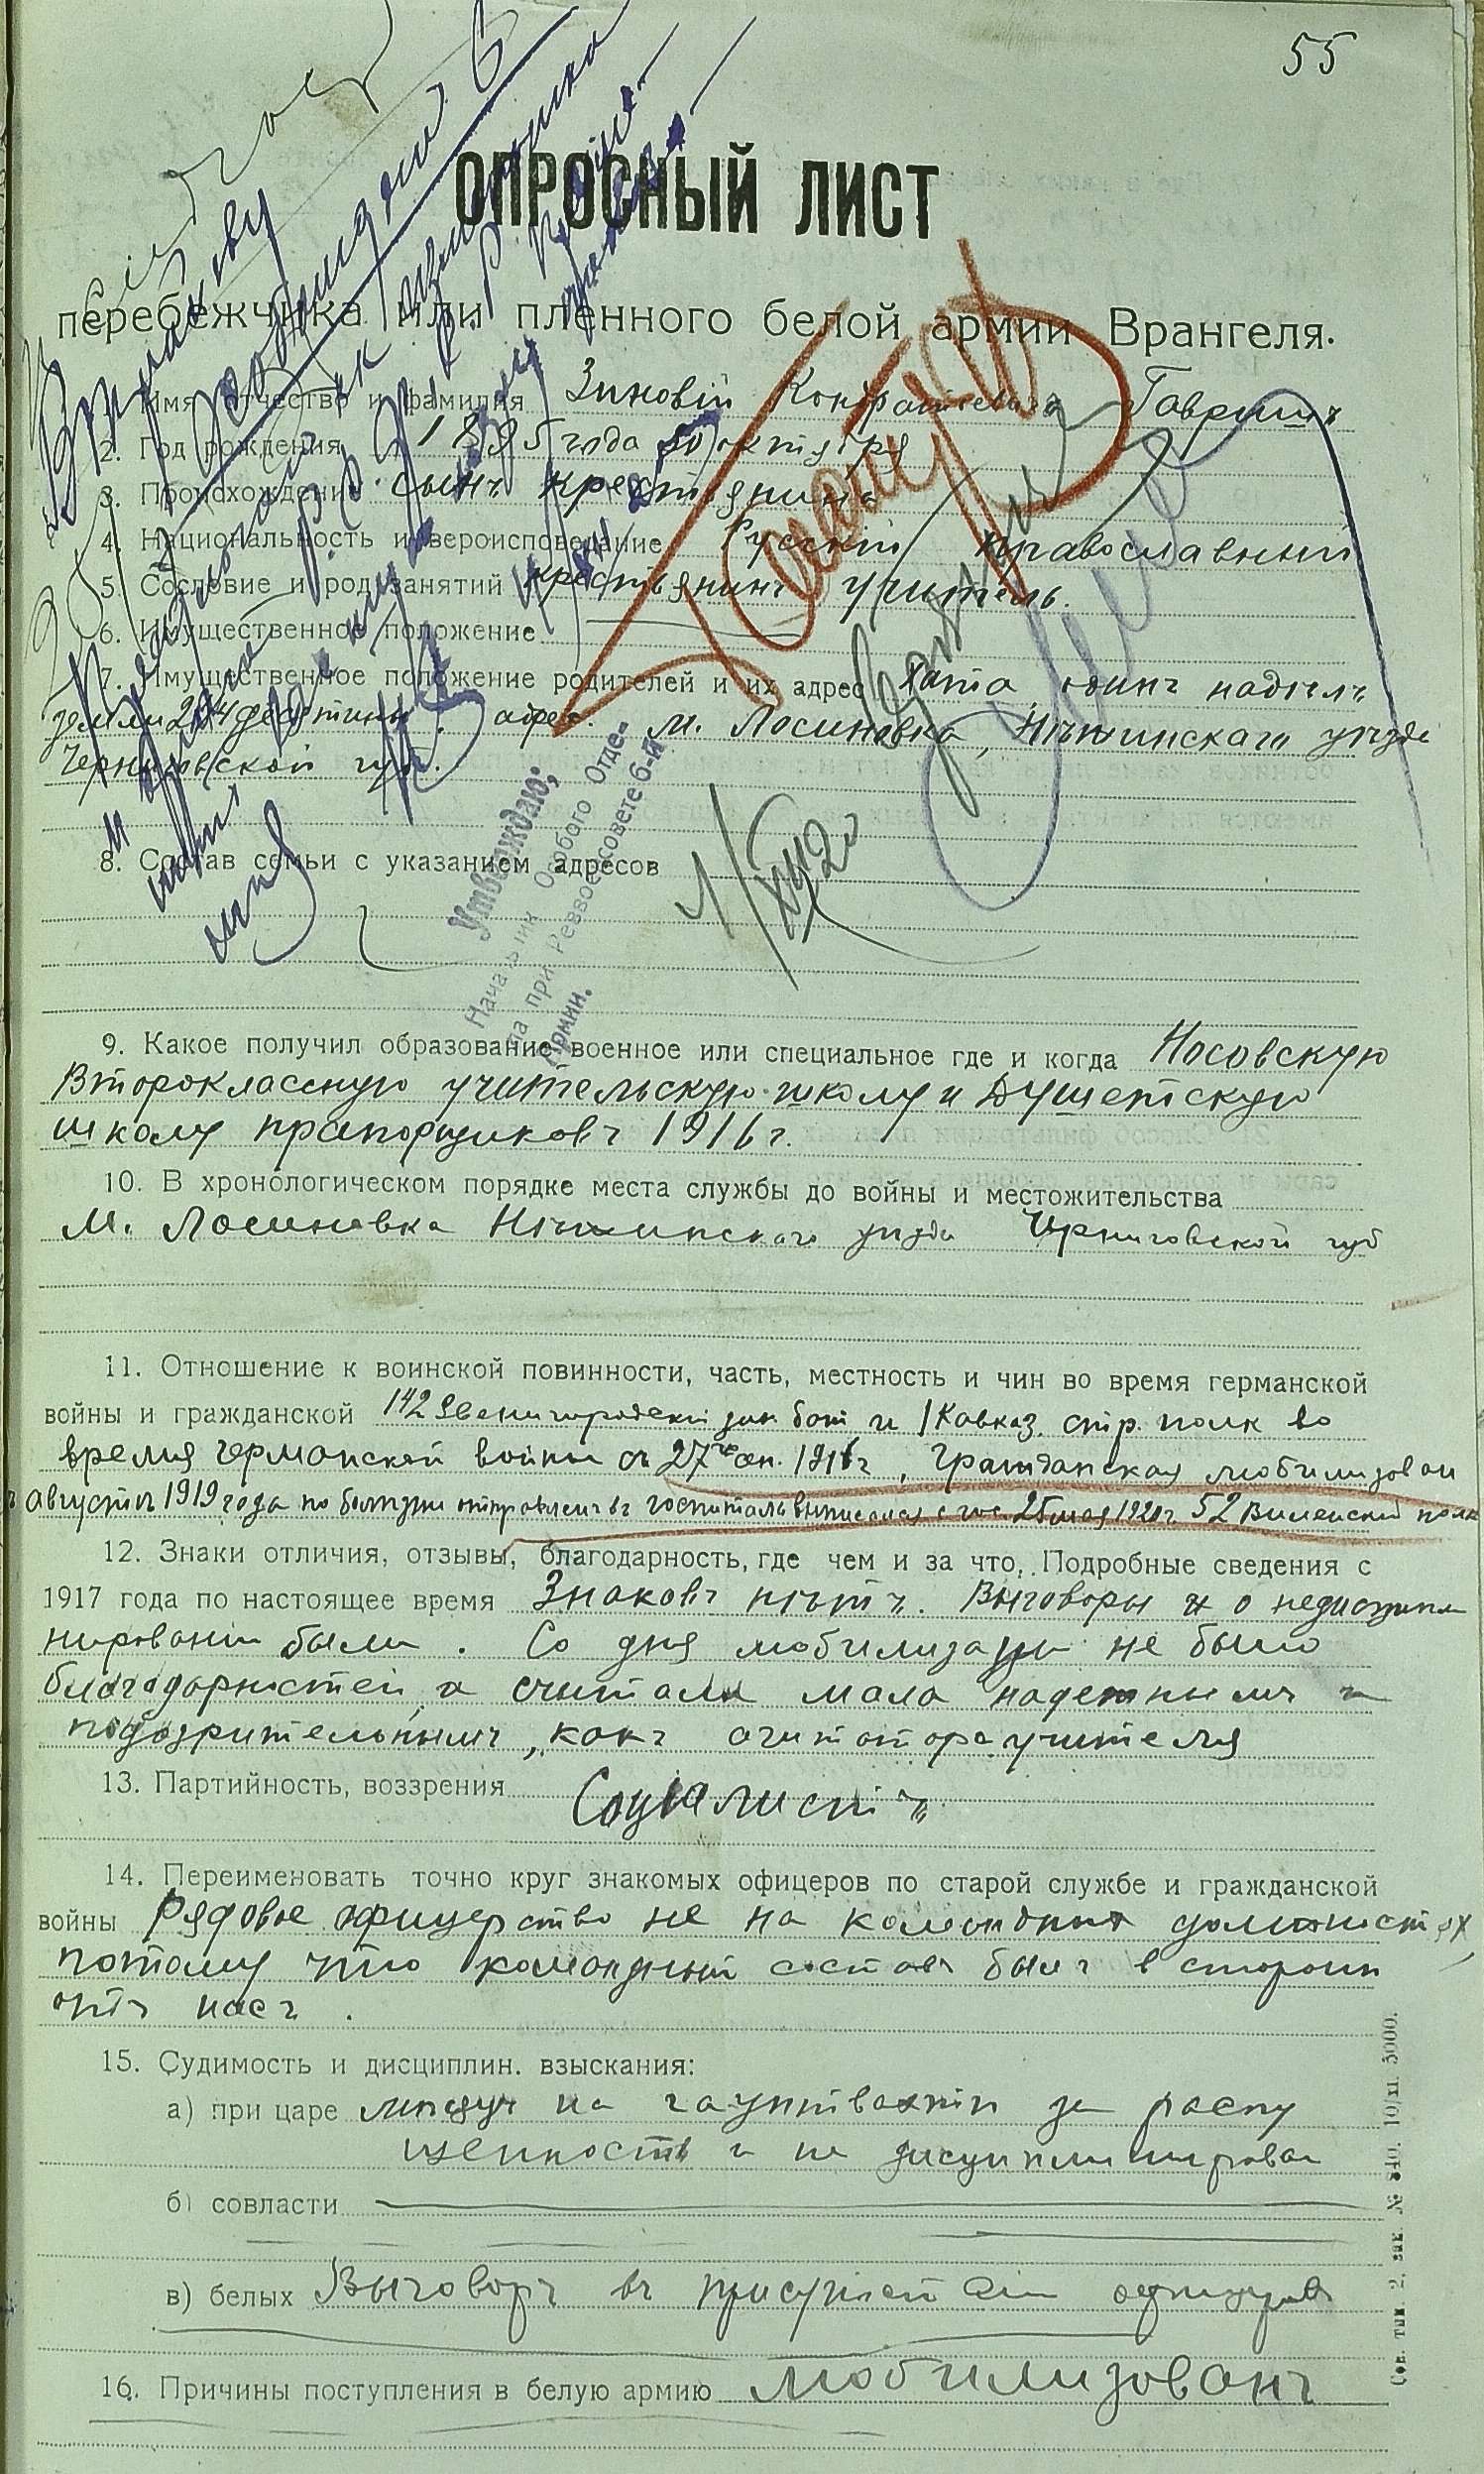 55
ОПРОСНЫЙ ЛИСТ
перебежчика или пленного белой армии Врангеля.
1. Имя отчество и фамилия Зиновій Кондратьевичъ Гавришъ
2. Год рождения 1895 года 30 октября
3. Происхождение сынъ крестьянина
4. Национальность и вероисповедание Русский православный
5. Сословие и род занятий крестьянинъ учитель.
6. Имущественное положение
7. Имущественное положение родителей и их адрес хата, одинъ надѣлъ
земли 2 3/4 десятины. адрес. м. Лосиновка, Нѣжинскаго уѣзда
Черниговской губ.
8. Состав семьи с указанием адресов
Утверждаю:
Начальник Особого Отде-
ла при Реввоенсовете 6-й
Армии.
1/XII 20
9. Какое получил образование военное или специальное где и когда Носовскую
Второклассную учительскую школу и Душетскую
школу прапорщиковъ 1916 г.
10. В хронологическом порядке места службы до войны и местожительства
м. Лосиновка Нѣжинскаго уѣзда Черниговской губ
11. Отношение к воинской повинности, часть, местность и чин во время германской
войны и гражданской 142 Звенигородский зап. бат и 1 Кавказ. стр. полк во
время германской войны съ 27го сен. 1916 г, Гражданская мобилизован
въ августѣ 1919 года по болѣзни отправленъ въ госпиталь выписался с гос. 25 мая 1920 г 52 Виленский полк
12. Знаки отличия, отзывы, благодарность, где чем и за что. Подробные сведения с
1917 года по настоящее время Знаковъ нѣтъ. Выговоры и о недисципли
нировании были. Со дня мобилизации не было
благодарностей а считали мало надежнымъ и
подозрительнымъ, какъ агитатора учителя
13. Партийность, воззрения Соціалистъ
14. Переименовать точно круг знакомых офицеров по старой службе и гражданской
войны Рядовое офицерство не на командных должностях,
потому что командный составъ былъ в сторонѣ
отъ насъ.
15. Судимость и дисциплин. взыскания:
а) при царе мѣсяцъ на гауптвахтѣ за распу
щенность и не дисциплинирован
б) совласти
в) белых Выговоръ въ присутствіи офицеровъ
16. Причины поступления в белую армию мобилизованъ